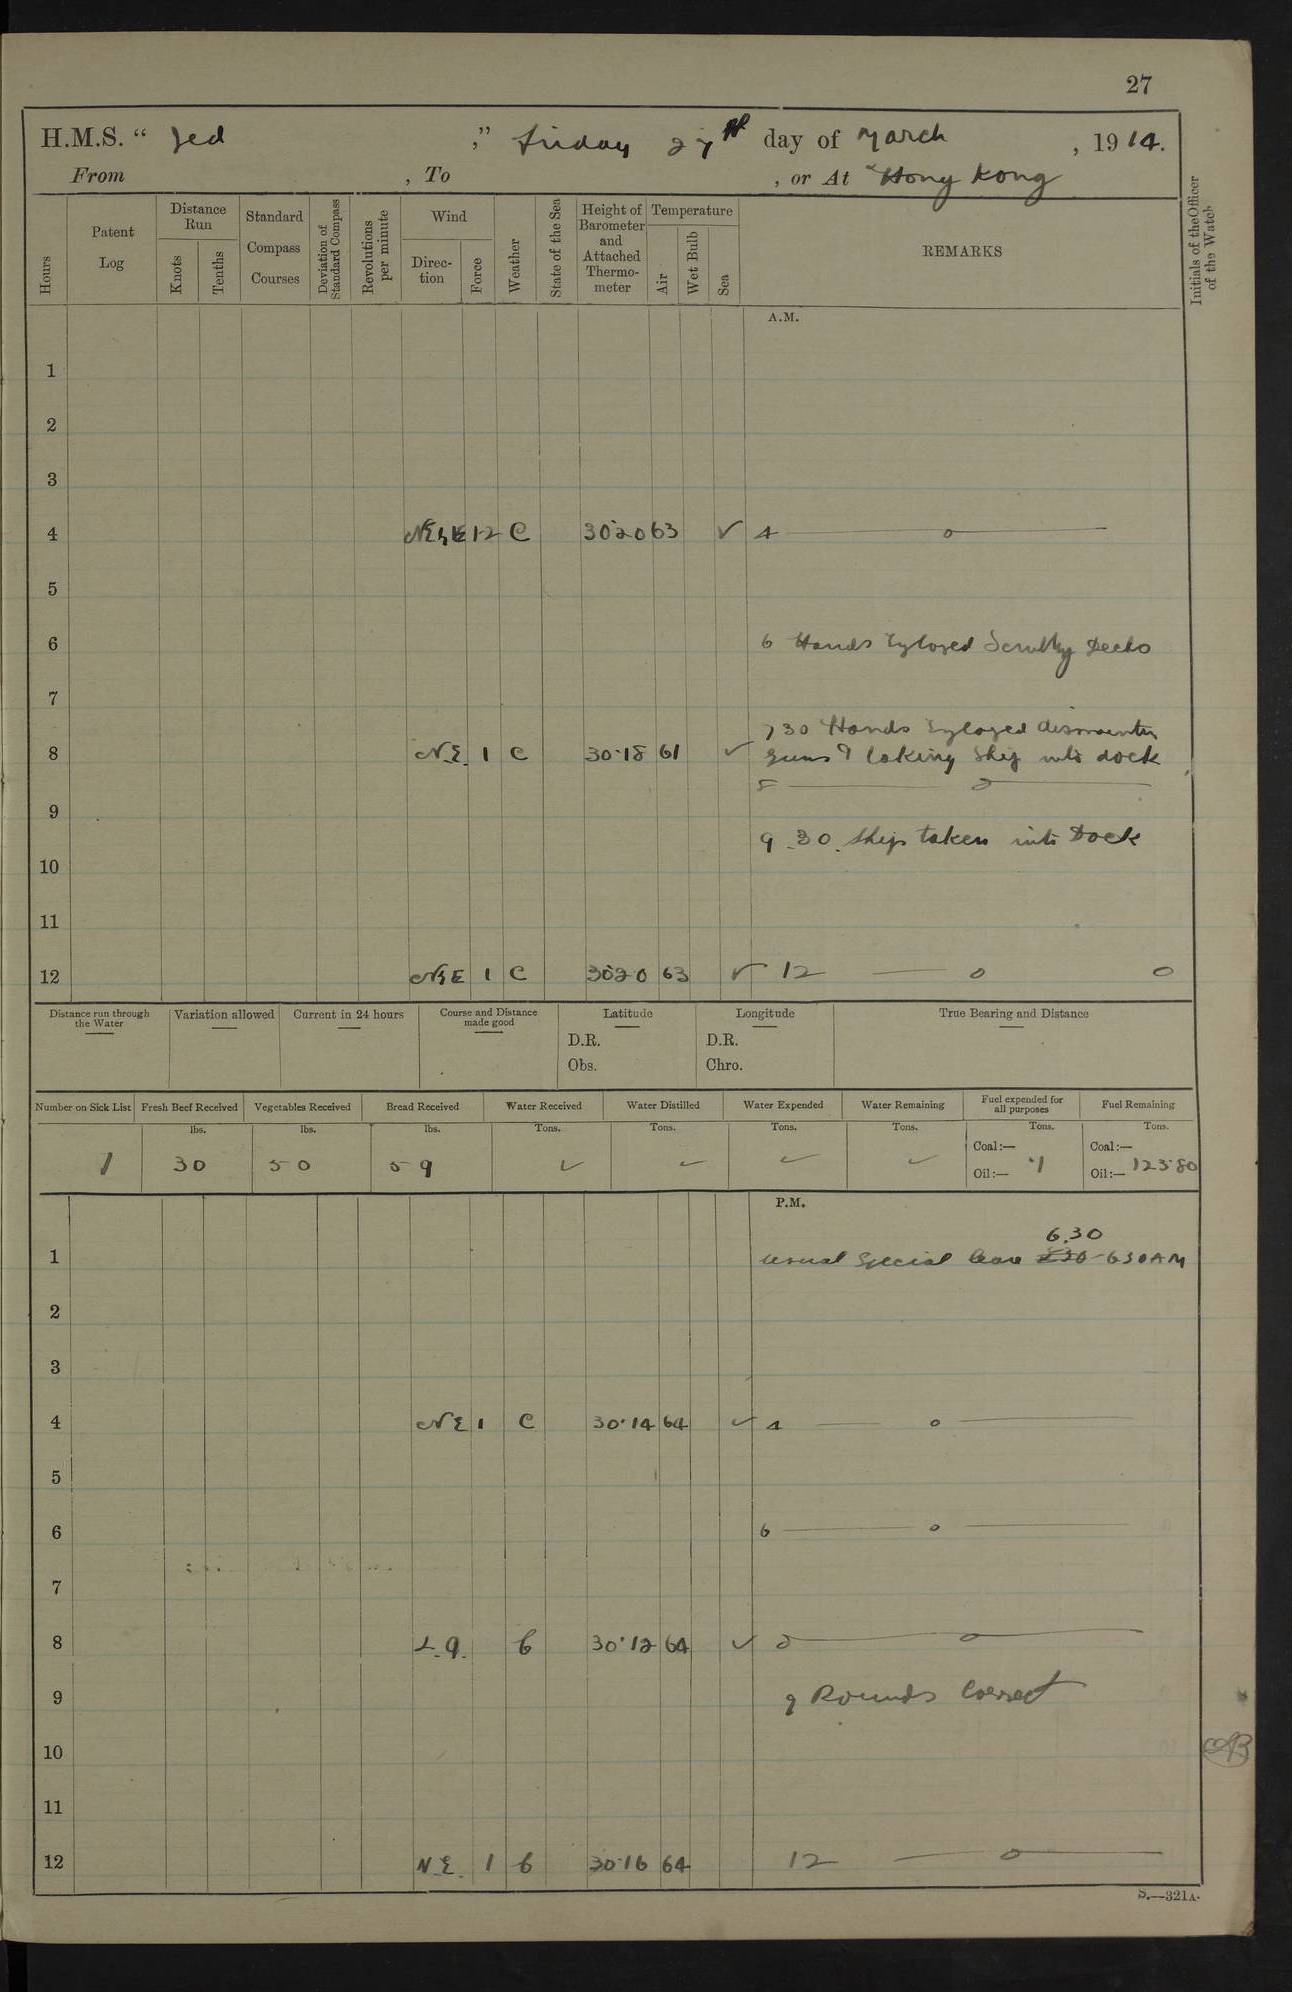 27
H.M.S. “ Jed ,” Friday 27th day of March , 1914.
From , To , or At Hong Kong
Hours
Patent Log
Distance Run
Knots
Tenths
Standard Compass Courses
Deviation of Standard Compass
Revolutions per minute
Wind
Direc-tion
Force
Weather
State of the Sea
Height of Barometer and Attached Thermo-meter
Temperature
Air
Wet Bulb
Sea
REMARKS
Initials of the Officer of the Watch
A.M.
1
2
3
4 NEbE 1-2 C 30.20 63 ✓ 4 —— o ——
5
6 6 Hands Eployed Scrubbg Decks
7
7 30 Hands Eployed dismountin
8 NE. 1 C 30.18 61 ✓ guns & taking ship into dock
8 —— o ——
9
9.30. Ship taken into Dock
10
11
12 NE 1 C 30.20 63 ✓ 12 —— o o
Distance run through the Water
Variation allowed
Current in 24 hours
Course and Distance made good
Latitude
D.R.
Obs.
Longitude
D.R.
Chro.
True Bearing and Distance
Number on Sick List
Fresh Beef Received
Vegetables Received
Bread Received
Water Received
Water Distilled
Water Expended
Water Remaining
Fuel expended for all purposes
Fuel Remaining
lbs. lbs. lbs. Tons. Tons. Tons. Tons. Tons. Tons.
Coal:— Coal:—
1 30 50 59 ✓ ✓ ✓ ✓ Oil:— .1 Oil:— 123.80
P.M.
6.30
1 usual special leave - 630 AM
2
3
4 NE 1 C 30.14 64 ✓ 4 —— o ——
5
6 6 —— o ——
7
8 L.a. b 30.12 64 ✓ 8 —— o ——
9 9 Rounds Correct
10
11
12 N.E. 1 b 30.16 64 12 —— o ——
S.—321A.